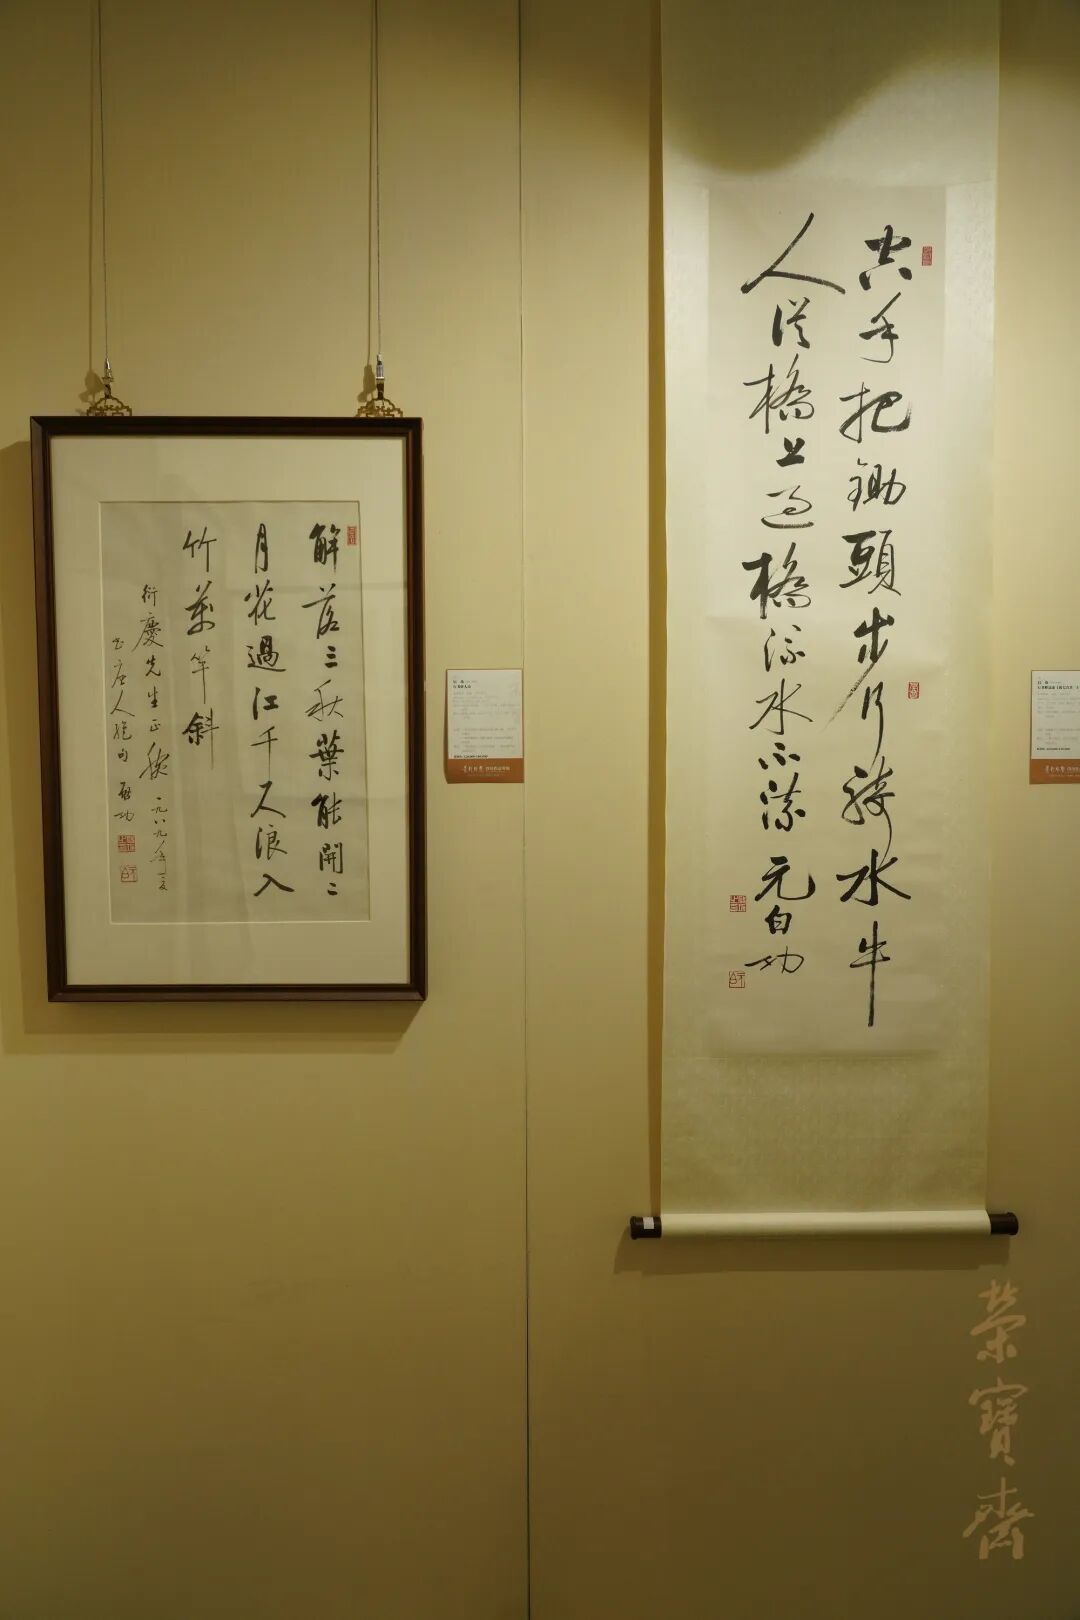 解落三秋葉能開二
月花過江千尺浪入
竹萬竿斜
衍慶先生正腕 一九八九年夏
书唐人絕句 啟功
空手把鋤頭步行騎水牛
人從橋上過橋流水不流 元白功
榮寶齋